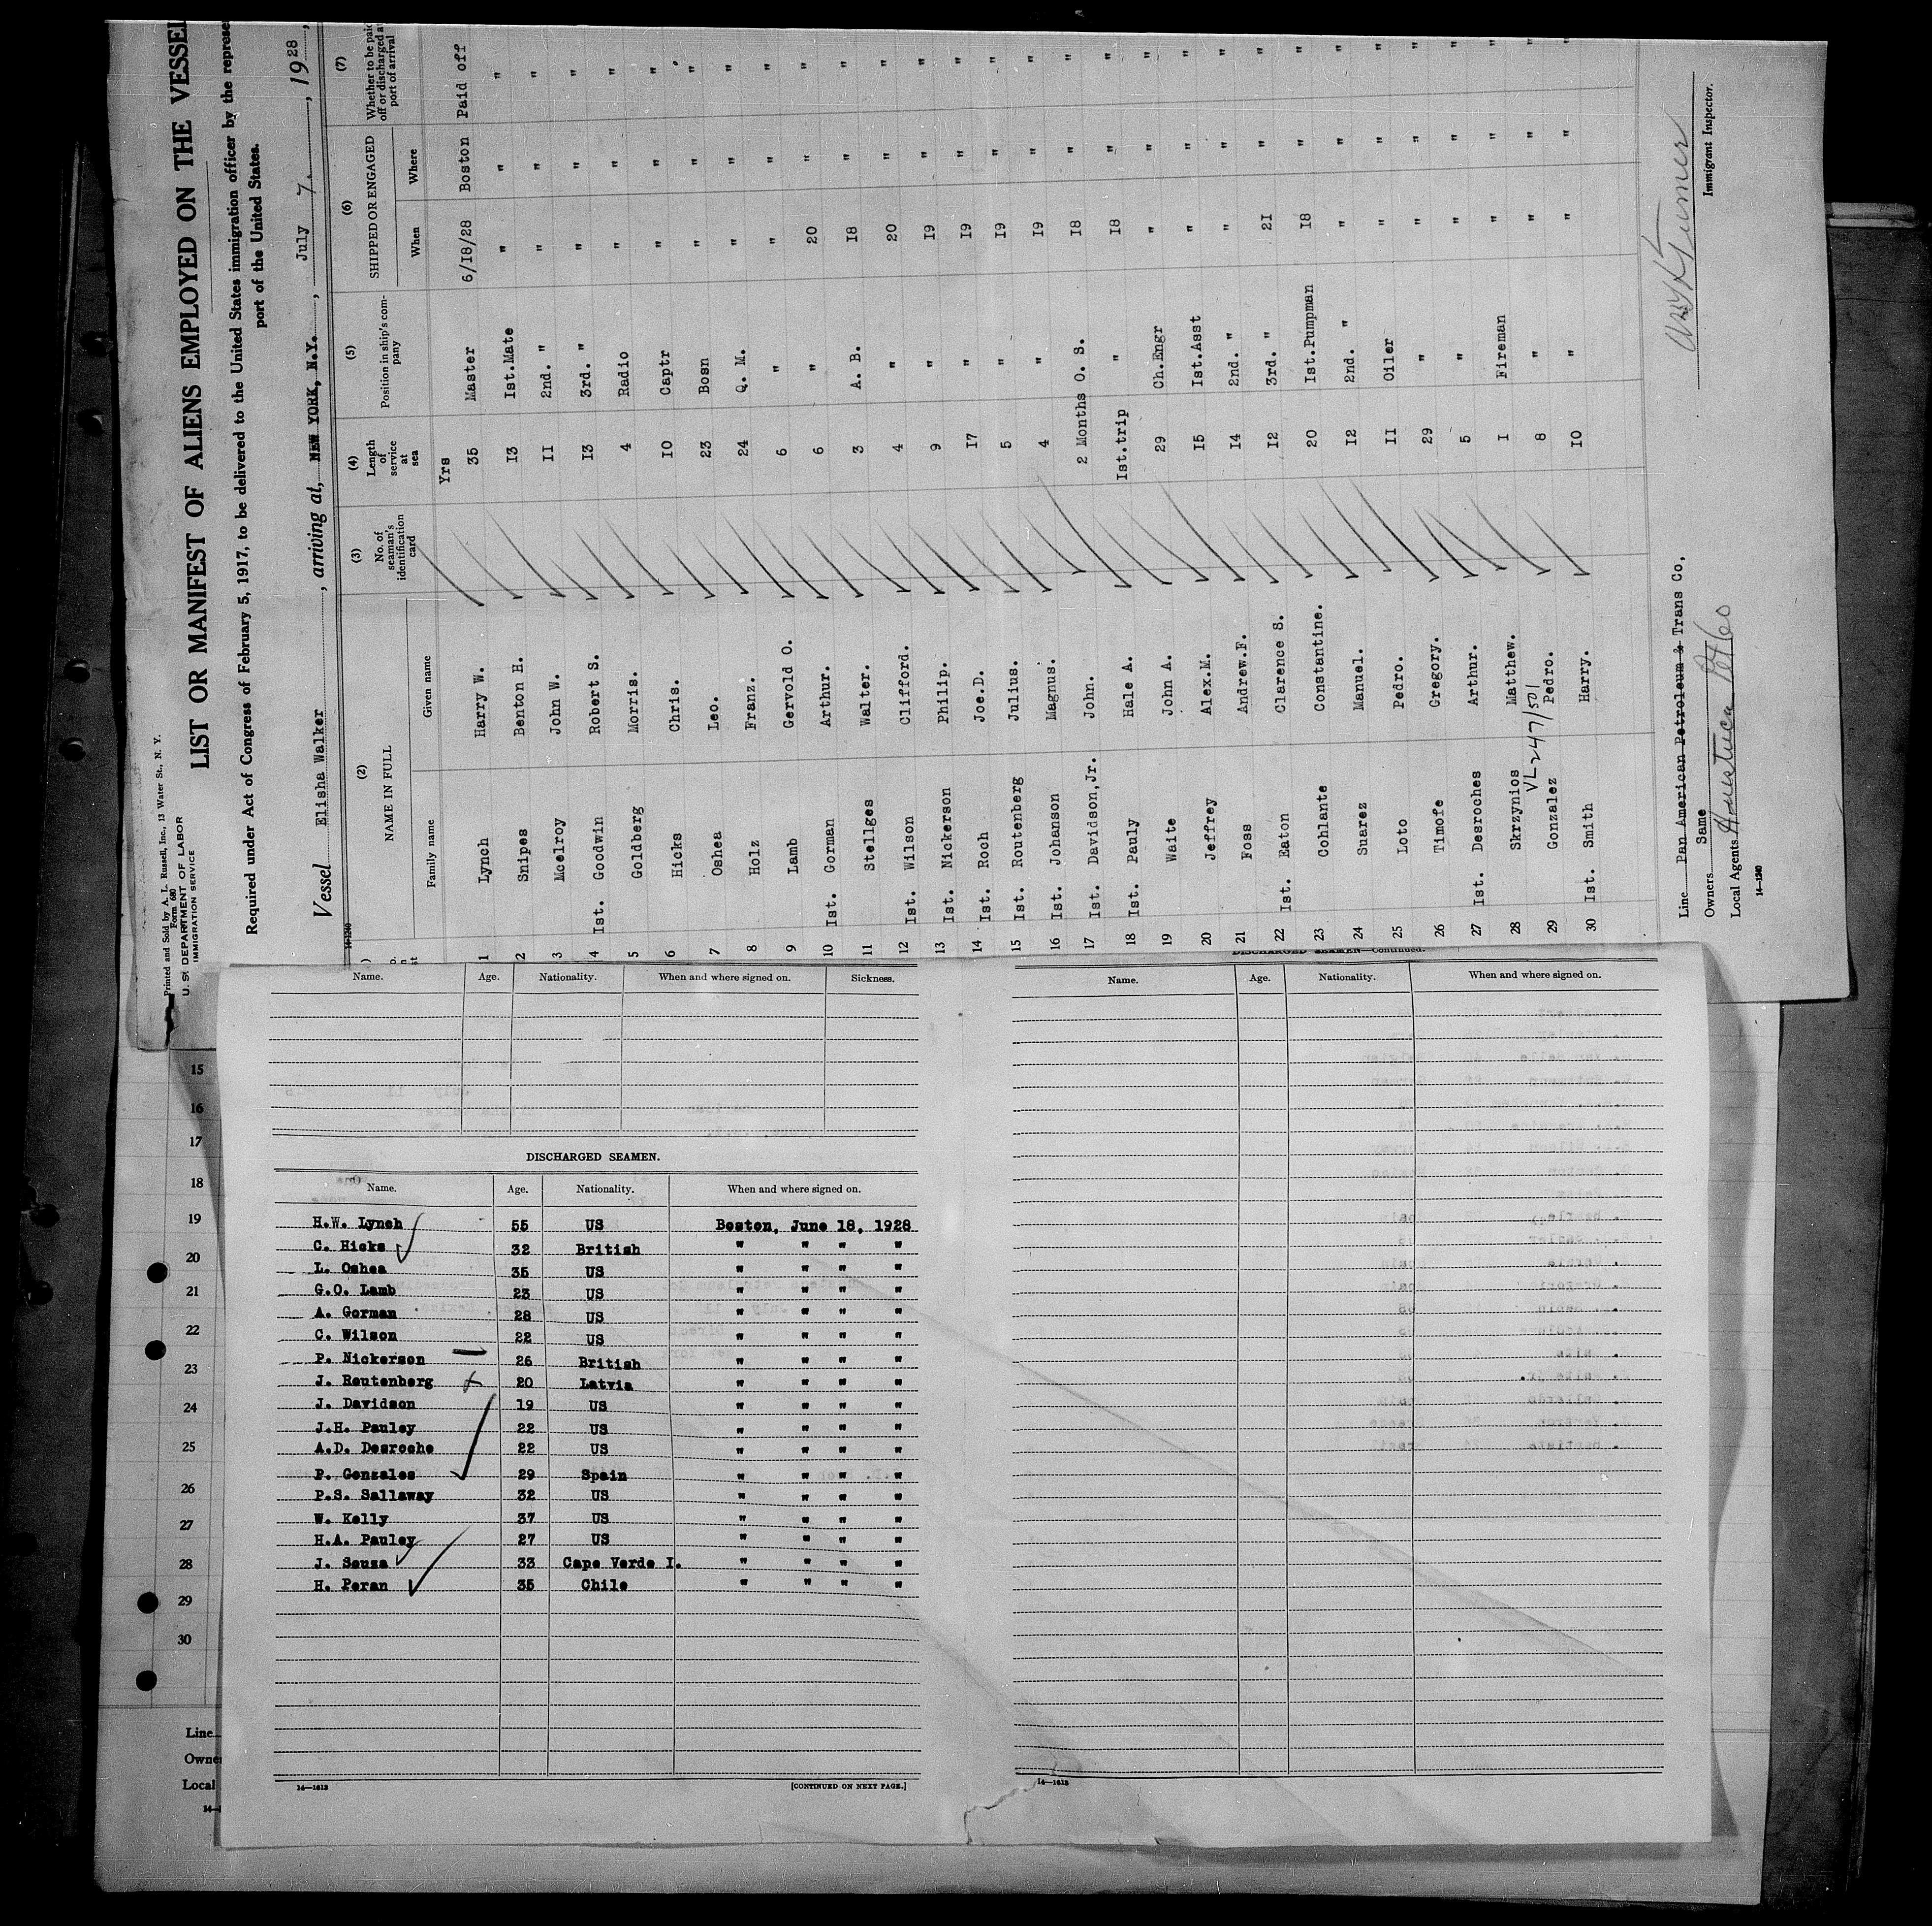 Printed and Sold by A. L. Russell, Inc., 13 Water St., N. Y.
Form 680
U. S. DEPARTMENT OF LABOR
IMMIGRATION SERVICE
LIST OR MANIFEST OF ALIENS EMPLOYED ON THE VESSEL
Required under Act of Congress of February 5, 1917, to be delivered to the United States immigration officer by the
port of the United States.
Vessel Elisha Walker, arriving at, NEW YORK, N.Y., July 7, 1928,
14-1240
(2) (3) (4) (5) (6) (7)
NAME IN FULL No. of seaman's identification card Length of service at sea Position in ship's company SHIPPED OR ENGAGED Whether to be paid off or discharged at port of arrival
Family name Given name When Where
Yrs
1 Lynch Harry W. 35 Master 6/18/28 Boston Paid off
2 Snipes Benton H. 13 Ist.Mate " " "
3 Mcelroy John W. II 2nd. " " " "
4 Ist. Goodwin Robert S. I3 3rd. " " " "
5 Goldberg Morris. 4 Radio " " "
6 Hicks Chris. IO Captr " " "
7 Oshea Leo. 23 Bosn " " "
8 Holz Franz. 24 Q. M. " " "
9 Lamb Gervold O. 6 " " " "
10 Ist. Gorman Arthur. 6 " 20 " "
11 Stellges Walter. 3 A. B. I8 " "
12 Ist. Wilson Clifford. 4 " 20 " "
13 Ist. Nickerson Philip. 9 " I9 " "
14 Ist. Roch Joe.D. I7 " I9 " "
15 Ist. Routenberg Julius. 5 " I9 " "
16 Ist. Johanson Magnus. 4 " I9 " "
17 Ist. Davidson,Jr. John. 2 Months O. S. I8 " "
18 Ist. Pauly Hale A. Ist.trip " I8 " "
19 Waite John A. 29 Ch.Engr " " "
20 Jeffrey Alex.M. I5 Ist.Asst " " "
21 Foss Andrew.F. I4 2nd. " " " "
22 Ist. Eaton Clarence S. I2 3rd. " 2I " "
23 Cohlante Constantine. 20 Ist.Pumpman I8 " "
24 Suarez Manuel. I2 2nd. " " " "
25 Loto Pedro. II Oiler " " "
26 Timofe Gregory. 29 " " " "
27 Ist. Desroches Arthur. 5 " " " "
28 Skrzynios Matthew. I Fireman " " "
VL-247/501
29 Gonzalez Pedro. 8 " " " "
30 Ist. Smith Harry. IO " " " "
Line Pan American Petroleum & Trans Co,
Owners Same
Local Agents
Immigrant Inspector.
14-1240
Name. Age. Nationality. When and where signed on. Sickness.
DISCHARGED SEAMEN.
Name. Age. Nationality. When and where signed on.
H.W. Lynch 55 US Boston, June 18, 1928
C. Hicks 32 British " " " "
L. Oshea 35 US " " " "
G.O. Lamb 23 US " " " "
A. Gorman 28 US " " " "
C. Wilson 22 US " " " "
P. Nickerson 26 British " " " "
J. Reutenberg 20 Latvia " " " "
J. Davidson 19 US " " " "
J.H. Pauley 22 US " " " "
A.D. Desroche 22 US " " " "
P. Gonzales 29 Spain " " " "
P.S. Sallaway 32 US " " " "
W. Kelly 37 US " " " "
H.A. Pauley 27 US " " " "
J. Souza 33 Cape Verde I. " " " "
H. Peran 35 Chile " " " "
14—1613 [CONTINUED ON NEXT PAGE.]
DISCHARGED SEAMEN—Continued.
Name. Age. Nationality. When and where signed on.
14—1613
15
16
17
18
19
20
21
22
23
24
25
26
27
28
29
30
Line
Owne
Local